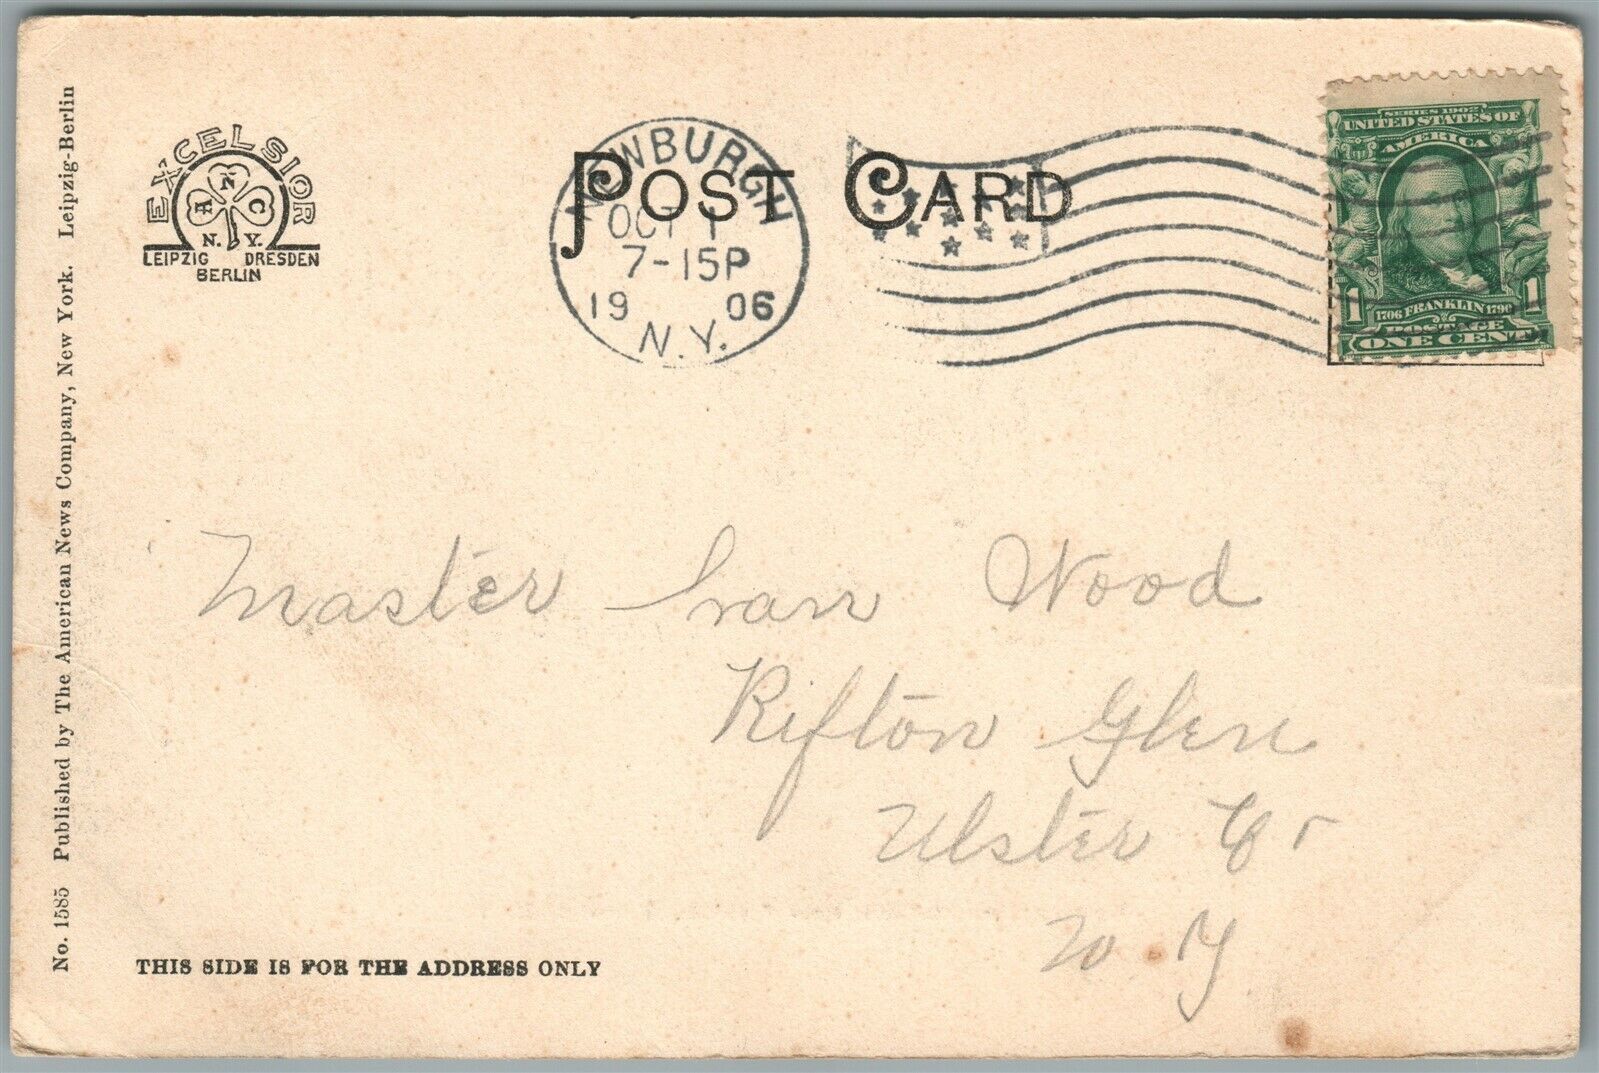 No. 1585 Published by The American News Company, New York. Leipzig-Berlin
EXCELSIOR
A N C
N. Y.
LEIPZIG DRESDEN
BERLIN
POST CARD
NEWBURGH
OCT 1
7-15P
19 06
N.Y.
SERIES 1902
UNITED STATES OF
AMERICA
1 1
1706 FRANKLIN 1790
POSTAGE
ONE CENT
Master Ivan Wood
Rifton Glen
Ulster Co
N Y
THIS SIDE IS FOR THE ADDRESS ONLY